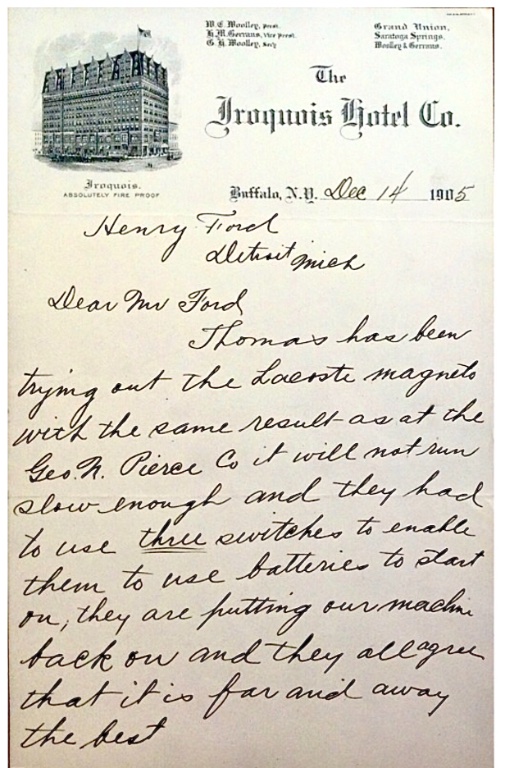 W. E. Woolley, Prest.
H. M. Gerrans, Vice Prest.
G. H. Woolley, Sec'y
Grand Union,
Saratoga Springs.
Woolley & Gerrans.
The
Iroquois Hotel Co.
Iroquois.
ABSOLUTELY FIRE PROOF
Buffalo, N.Y. Dec 14 1905
Henry Ford
Detroit Mich
Dear Mr Ford
Thomas has been
trying out the Lacoste magneto
with the same result as at the
Geo. N. Pierce Co it will not run
slow enough and they had
to use three switches to enable
them to use batteries to start
on, they are putting our machine
back on and they all agree
that it is far and away
the best